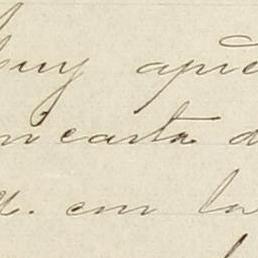 muy apre
n carta d
q. con la